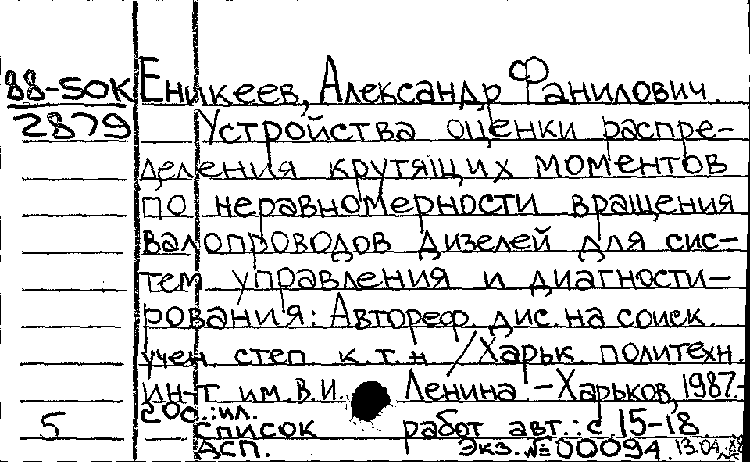 88-50К Еникеев, Александр Фанилович.
2879 Устройства оценки распре-
деления крутящих моментов
по неравномерности вращения
валопроводов дизелей для сис-
тем управления и диагности-
рования: Автореф. дис. на соиск.
учен. степ. к.т.н. / Харьк. политехн.
ин-т им. В.И. Ленина. - Харьков, 1987.-
с.: ил.
5 Список работ авт.: с. 15-18.
АСП. Экз. № 00094 13.04.